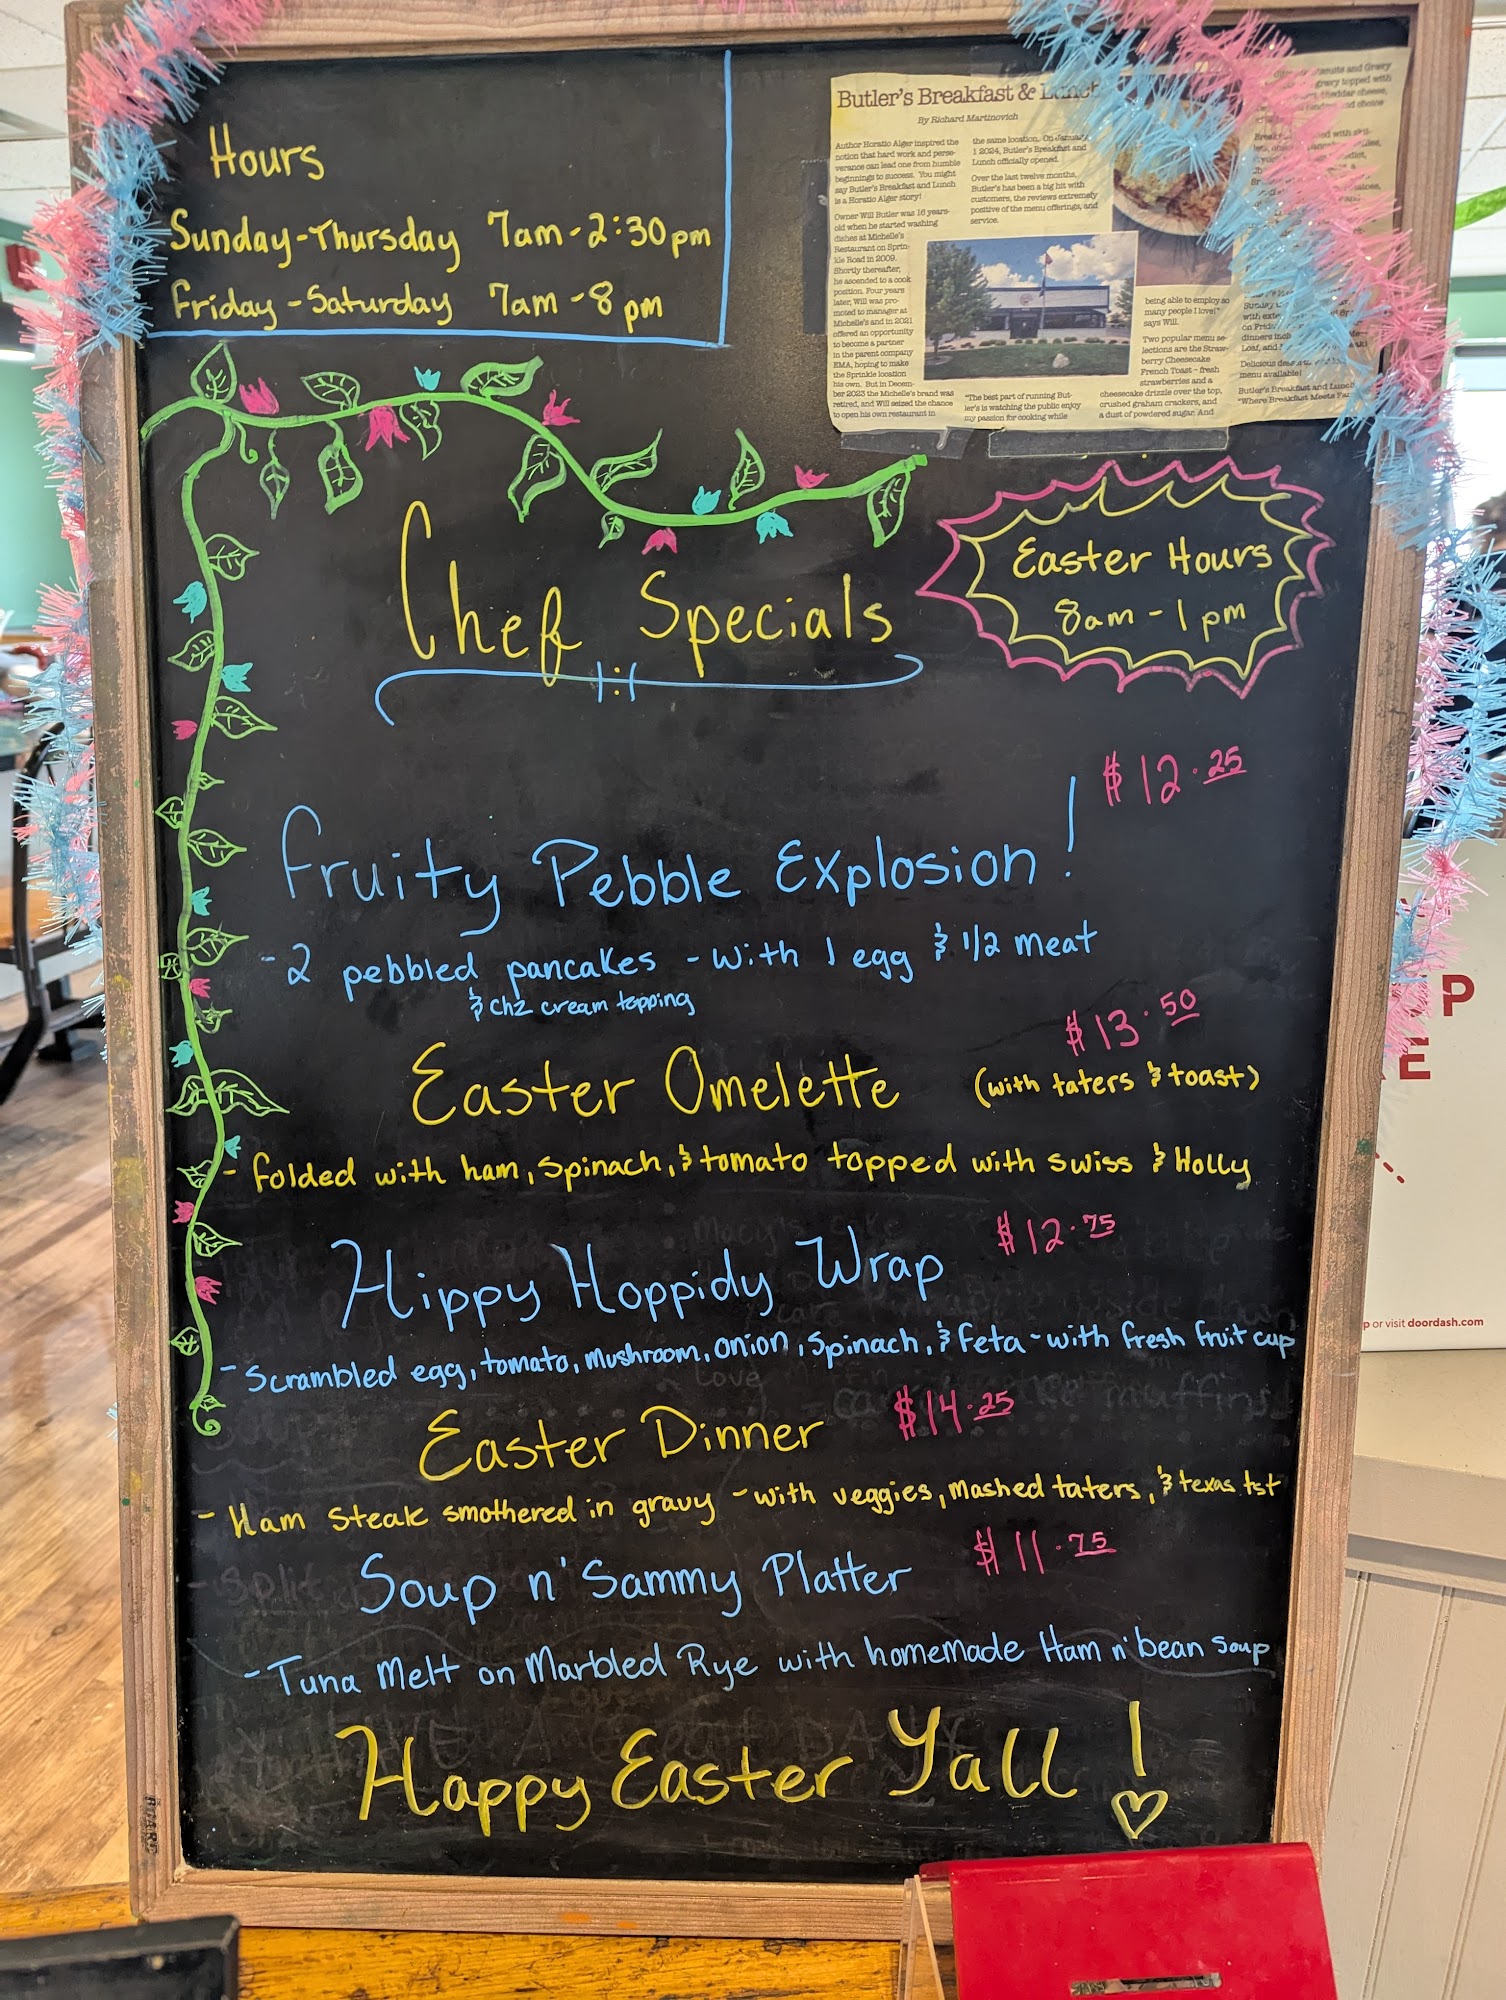 Hours
Sunday-Thursday 7am-2:30pm
Friday-Saturday 7am-8pm
Butler's Breakfast & Lunch
By Richard Martinovich
Author Horatio Alger inspired the
notion that hard work and perse-
verance can lead one from humble
beginnings to success. You might
say Butler's Breakfast and Lunch
is a Horatio Alger story!
Owner Will Butler was 16 years-
old when he started washing
dishes at Michelle's
Restaurant on Sprin-
kle Road in 2009.
Shortly thereafter,
he ascended to a cook
position. Four years
later, Will was pro-
moted to manager at
Michelle's and in 2021
offered an opportunity
to become a partner
in the parent company
EMA, hoping to make
the Sprinkle location
his own. But in Decem-
ber 2023 the Michelle's brand was
retired, and Will seized the chance
to open his own restaurant in
the same location. On January
1 2024, Butler's Breakfast and
Lunch officially opened.
Over the last twelve months,
Butler's has been a big hit with
customers, the reviews extremely
positive of the menu offerings, and
service.
"The best part of running But-
ler's is watching the public enjoy
my passion for cooking while
being able to employ so
many people I love!"
says Will.
Two popular menu se-
lections are the Straw-
berry Cheesecake
French Toast - fresh
strawberries and a
cheesecake drizzle over the top,
crushed graham crackers, and
a dust of powdered sugar. And
and Gravy
gravy topped with
cheddar cheese,
and choice
with
on
dinners
Loaf, and
Delicious
menu available!
Butler's Breakfast and Lunch
"Where Breakfast Meets
Easter Hours
8am - 1pm
Chef Specials
$12.25
Fruity Pebble Explosion!
- 2 pebbled pancakes - with 1 egg & 1/2 meat
& chz cream topping
$13.50
Easter Omelette (with taters & toast)
- folded with ham, spinach, & tomato topped with swiss & Holly
Hippy Hoppidy Wrap $12.75
- Scrambled egg, tomato, mushroom, onion, spinach, & feta - with fresh fruit cup
Easter Dinner $14.25
- Ham Steak smothered in gravy - with veggies, mashed taters, & texas tst
Soup n' Sammy Platter $11.75
- Tuna Melt on Marbled Rye with homemade Ham n' bean soup
Happy Easter Yall!
P
E
p or visit doordash.com